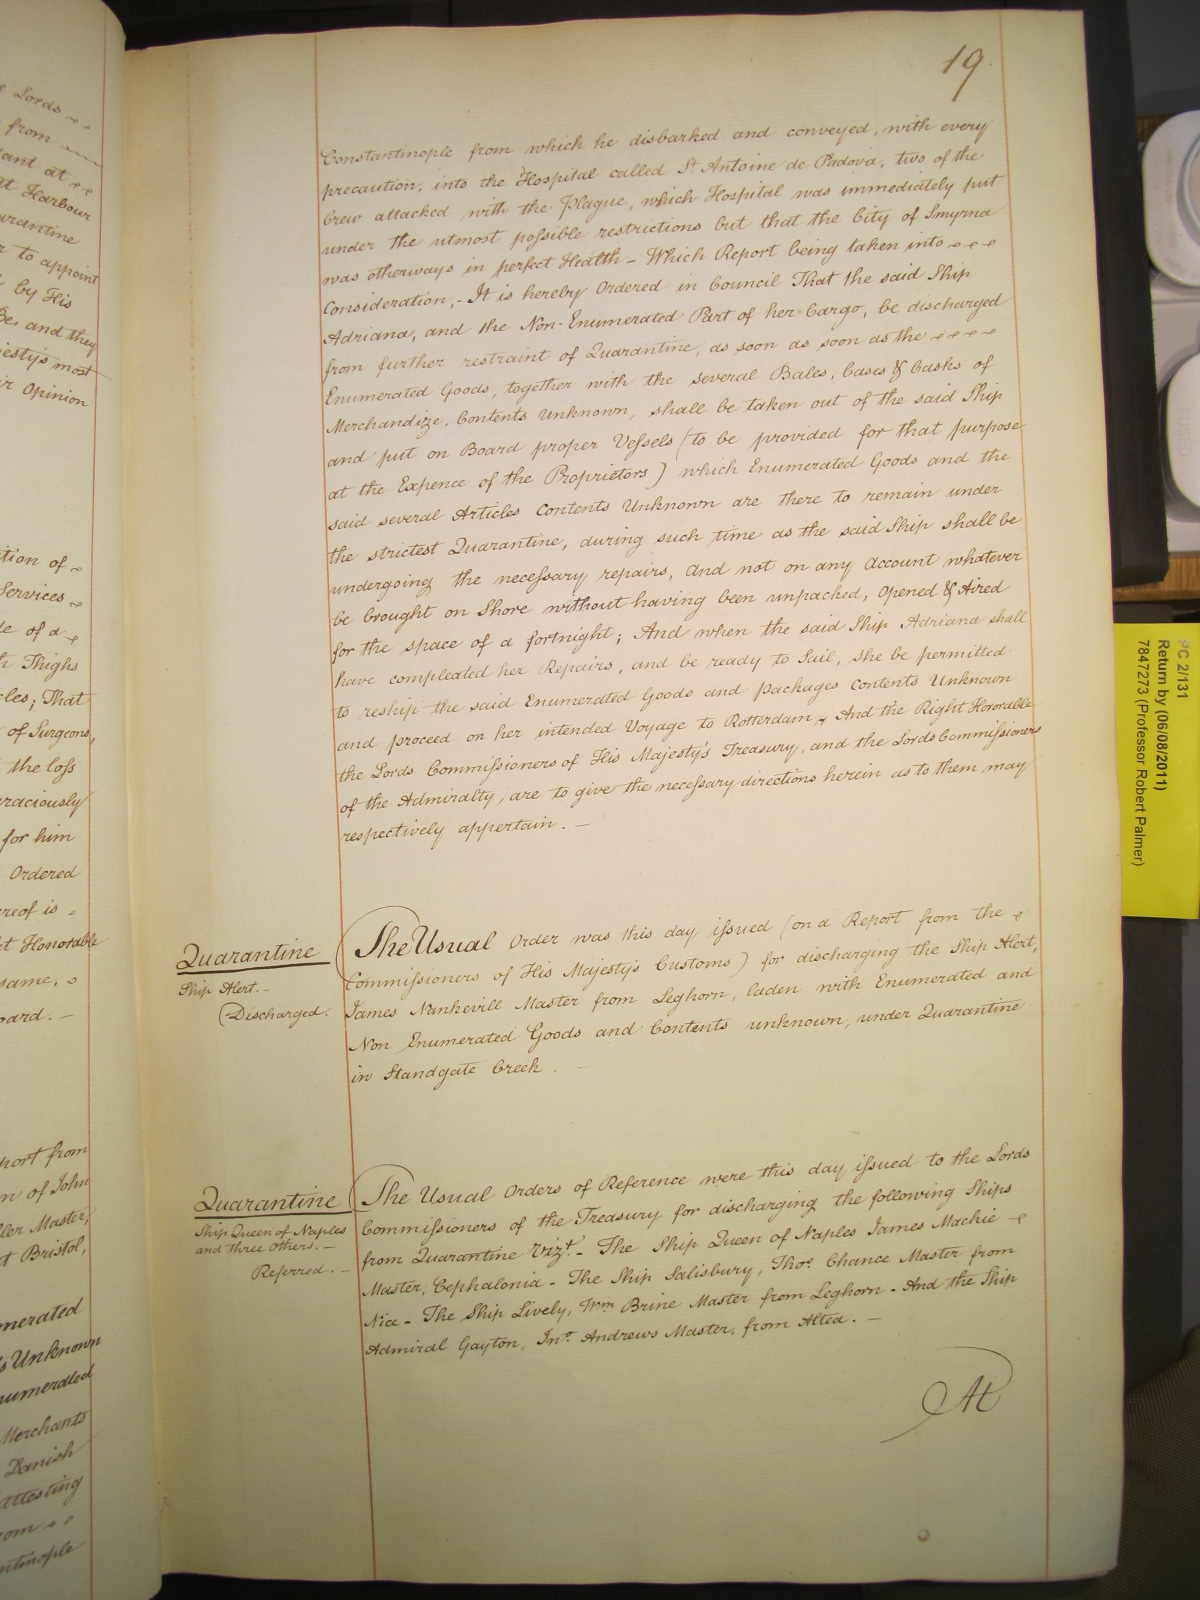 e Lords
from
ant at
t Harbour
arantine
r to appoint
by His
Be, and they
jesty's most
ir Opinion
tion of
Services
le of a
h Thighs
cles; That
of Surgeons,
the loss
raciously
for him
Ordered
ereof is
ht Honorable
same,
oard. —
port from
n of John
ller Master,
t Bristol,
merated
s Unknown
numerated
Merchants
Danish
attesting
rom
ntinople
19.
Constantinople from which he disbarked and conveyed, with every
precaution, into the Hospital called St. Antoine de Padova, two of the
Crew attacked with the Plague, which Hospital was immediately put
under the utmost possible restrictions but that the City of Smyrna
was otherways in perfect Health – Which Report being taken into
Consideration, – It is hereby Ordered in Council That the said Ship
Adriana, and the Non-Enumerated Part of her Cargo, be discharged
from further restraint of Quarantine, as soon as soon as the
Enumerated Goods, together with the several Bales, Cases & Casks of
Merchandize, Contents Unknown, shall be taken out of the said Ship
and put on Board proper Vessels (to be provided for that purpose
at the Expence of the Proprietors) which Enumerated Goods and the
said several Articles Contents Unknown are there to remain under
the strictest Quarantine, during such time as the said Ship shall be
undergoing the necessary repairs, and not on any Account whatever
be brought on Shore without having been unpacked, opened & Aired
for the space of a fortnight; And when the said Ship Adriana shall
have compleated her Repairs, and be ready to Sail, she be permitted
to reship the said Enumerated Goods and packages Contents Unknown
and proceed on her intended Voyage to Rotterdam, And the Right Honorable
the Lords Commissioners of His Majesty's Treasury, and the Lords Commissioners
of the Admiralty, are to give the necessary directions herein as to them may
respectively appertain. —
Quarantine
Ship Alert. –
Discharged.
The Usual Order was this day issued (on a Report from the
Commissioners of His Majesty's Customs) for discharging the Ship Alert,
James Nankevill Master from Leghorn, laden with Enumerated and
Non Enumerated Goods and Contents unknown, under Quarantine
in Standgate Creek. –
Quarantine
Ship Queen of Naples
and three Others. –
Referred. –
The Usual Orders of Reference were this day issued to the Lords
Commissioners of the Treasury for discharging the following Ships
from Quarantine Vizt. – The Ship Queen of Naples James Mackie
Master, Cephalonia – The Ship Salisbury, Thos. Chance Master from
Nice – The Ship Lively, Wm Brine Master from Leghorn – And the Ship
Admiral Gayton, Jno. Andrews Master, from Altea. –
At
PC 2/131
Return by (06/08/2011)
7847273 (Professor Robert Palmer)
USED